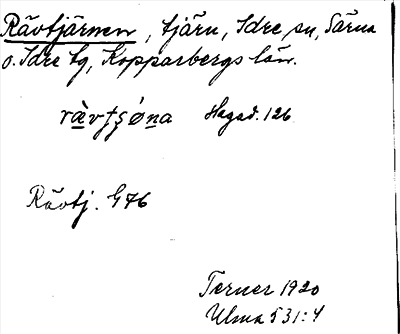 Rävtjärnen, tjärn, Idre sn, Särna
o. Idre tg, Kopparbergs län.
Hagad. 126
Rävtj. G76
Terner 1920
Ulma 531:4